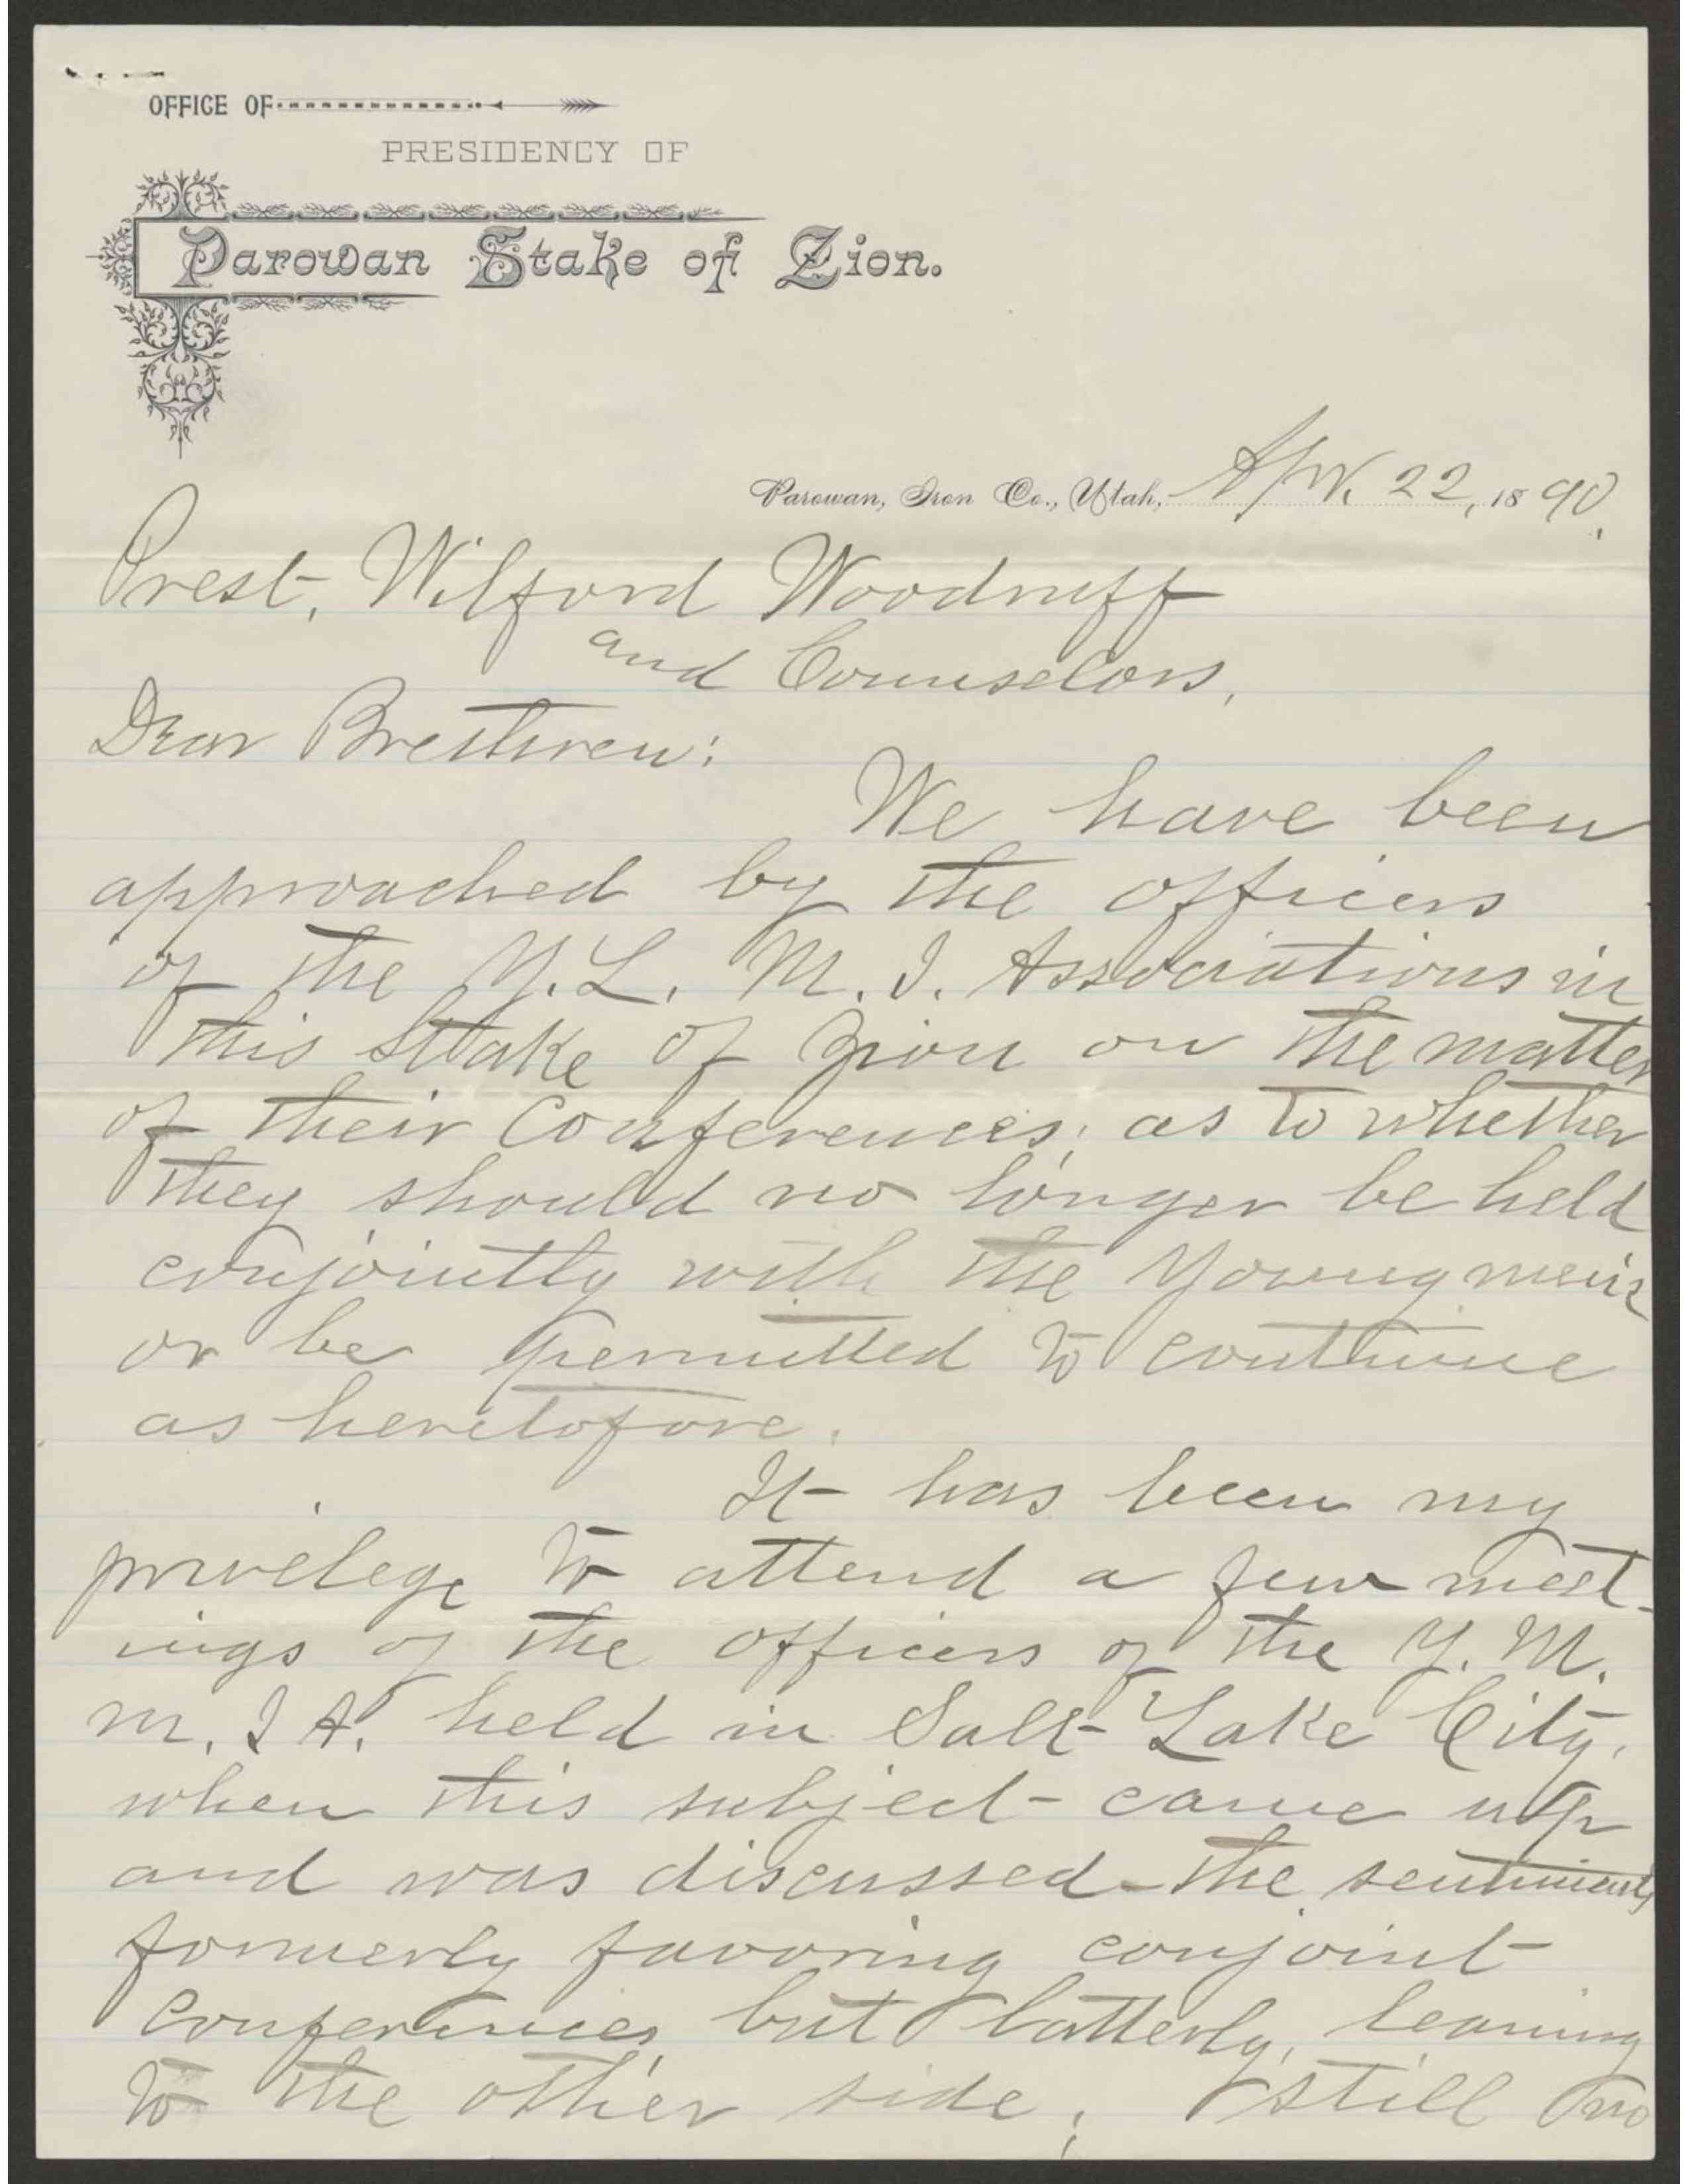 OFFICE OF
PRESIDENCY OF
Parowan Stake of Zion.
Parowan, Iron Co., Utah, Apr. 22, 1890.
Prest. Wilford Woodruff
and Counselors,
Dear Brethren:
We have been
approached by the officers
of the Y. L. M. I. Associations in
this Stake of Zion on the matter
of their Conferences; as to whether
they should no longer be held
conjointly with the Young mens
or be permitted to continue
as heretofore.
It has been my
privelege to attend a few meet-
ings of the officers of the Y. M.
M. I A. held in Salt Lake City,
when this subject came up
and was discussed - the sentiments
formerly favoring conjoint
conferences, but latterly, leaning
to the other side; still no